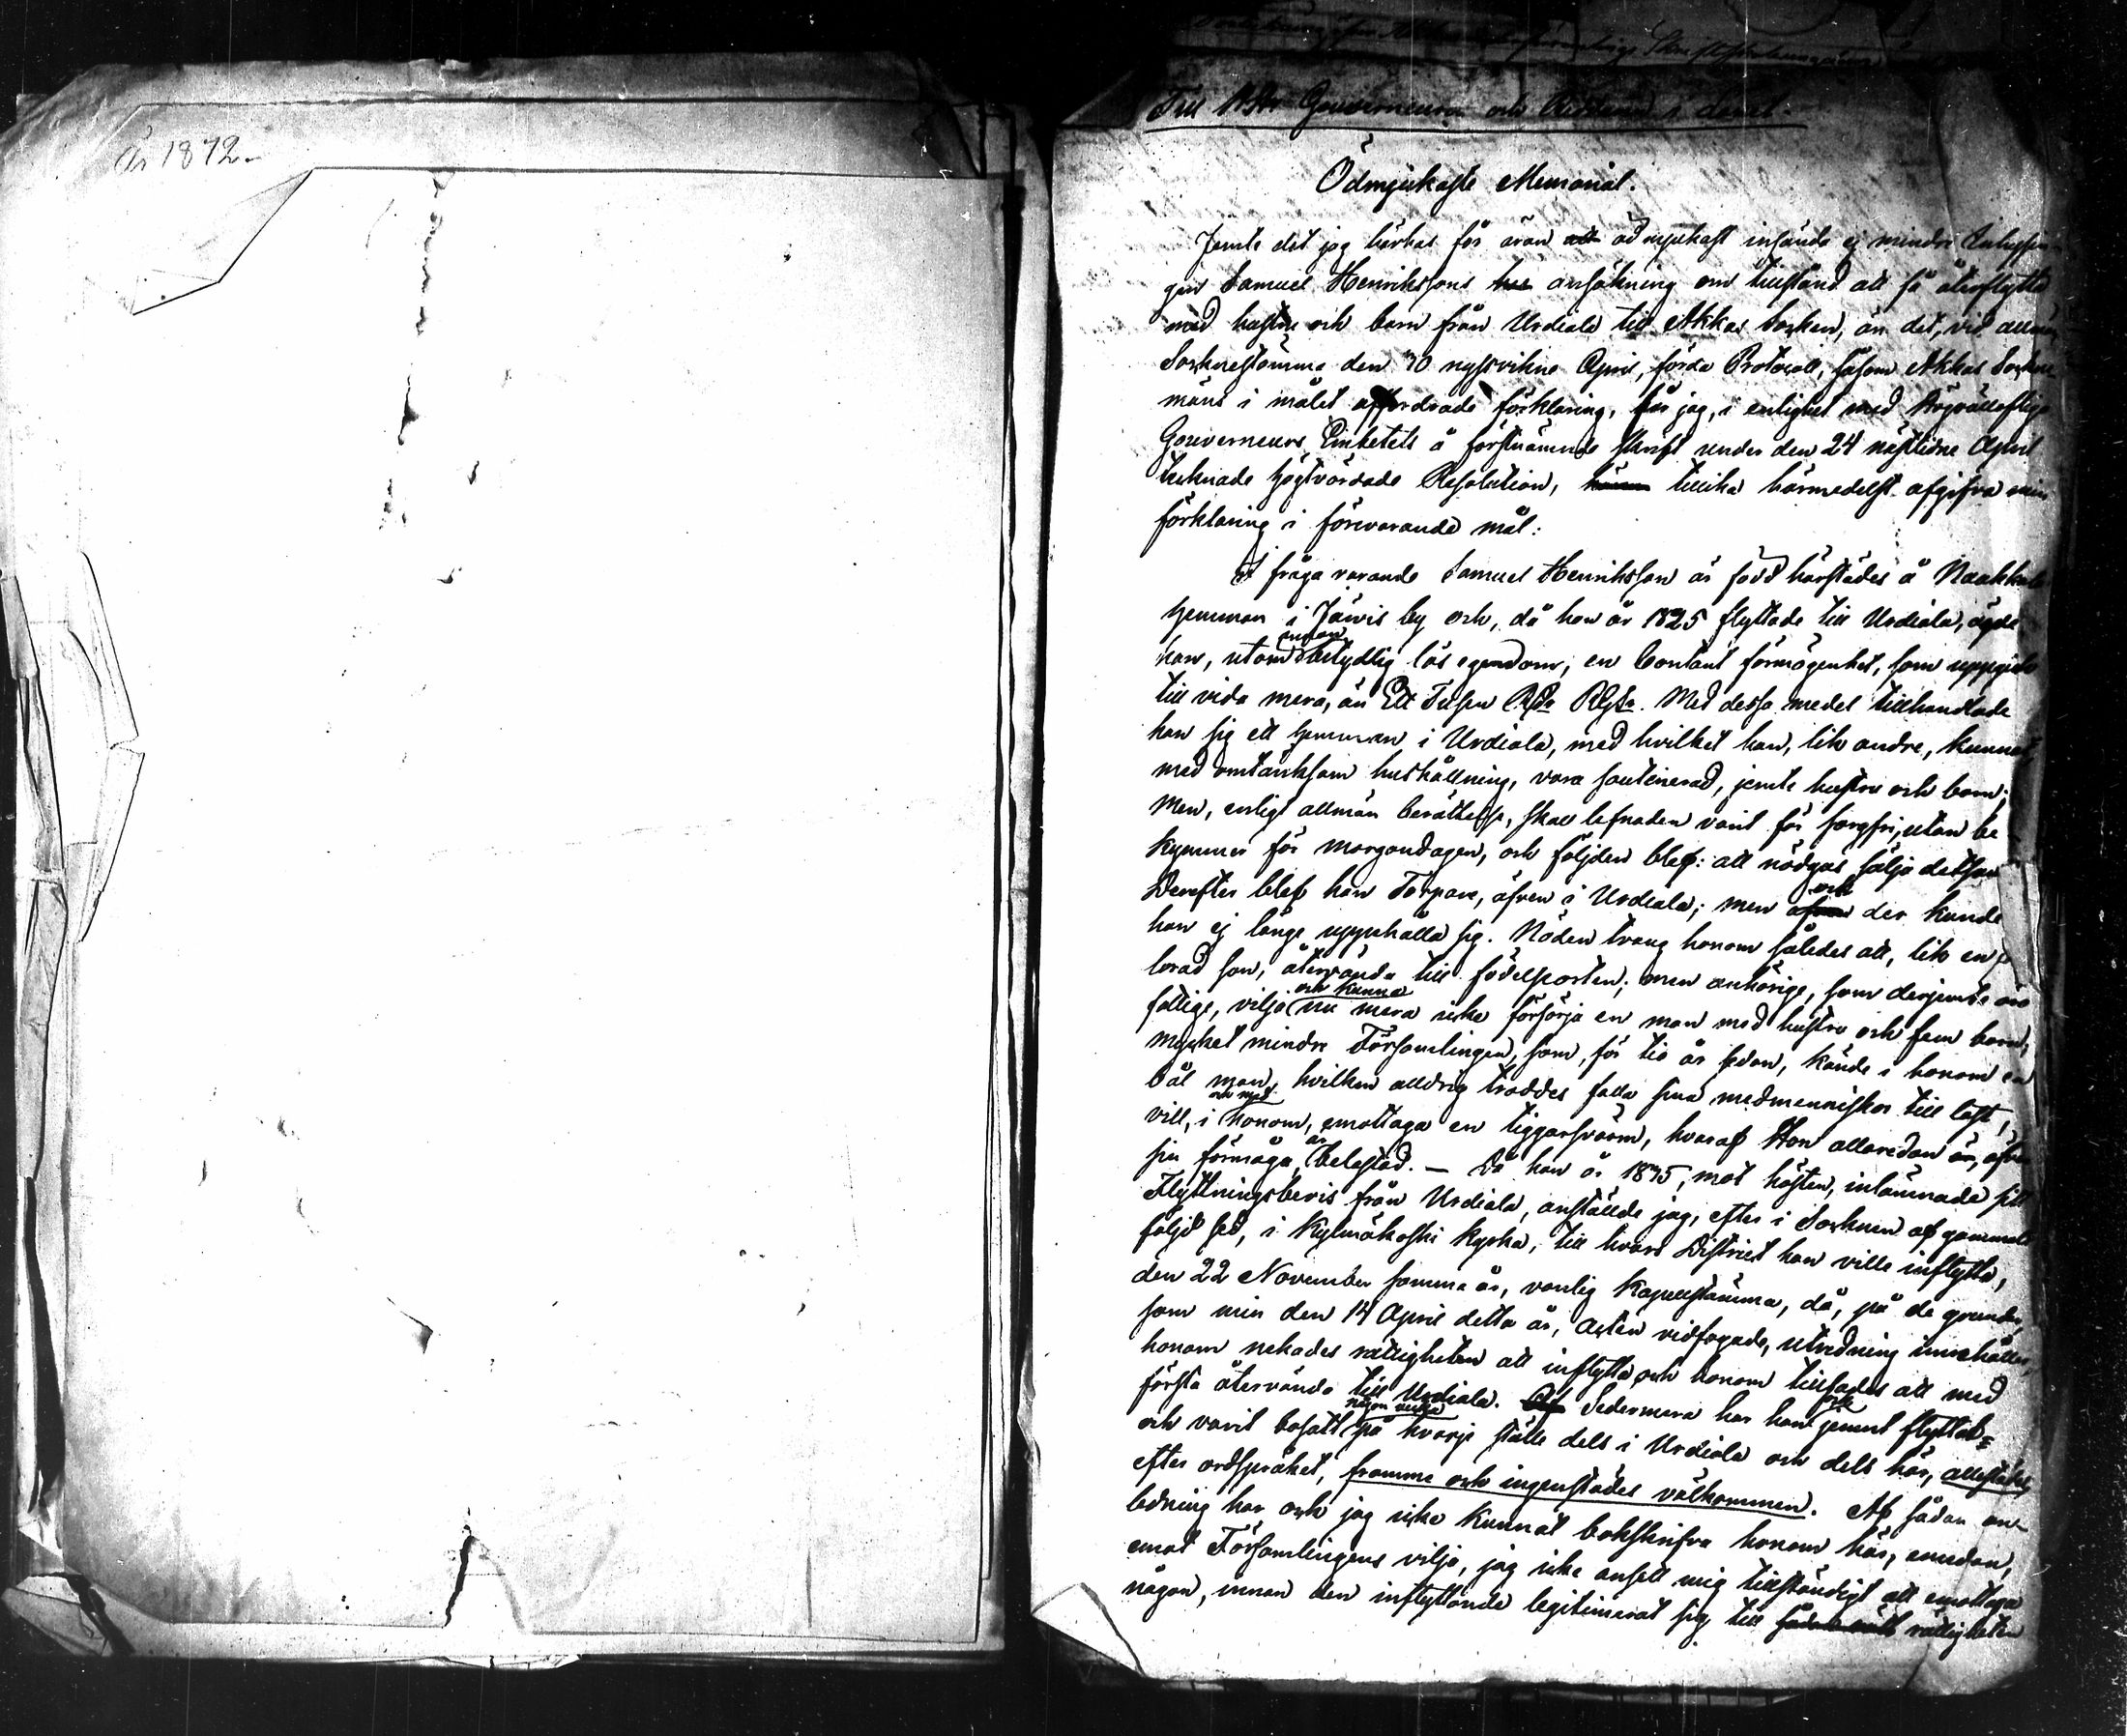 År 1872.
Till HHr Gouverneuren och Riddaren i länet.
Ödmjukaste Memorial.
Jemte det jag härhos får äran att ödmjukast insända ej mindre Inhysin-
gen Samuel Henrikssons ansökning om tillstånd att få återflytta
med hustru och barn från Urdiala till Akkas Socken, än det, vid allmän
Socknestämma den 30 nyssvikne April, förda Protocoll, såsom Akkas Sockne-
mäns i målet affordrade förklaring, får jag, i enlighet med Högvälloflige
Gouverneurs Embetets å förstnämnde skrift under den 24 nästledne April
tecknade högtvördade Resolution, tillika härmedelst afgifva min
förklaring i förevarande mål:
I fråga varande Samuel Henriksson är född härstädes å Naukkula
hemman i Järvis by och, då han år 1825 flyttade till Urdiala, ägde
han, utom annan betydlig lös egendom, en contant förmögenhet, som uppgick
till vida mera, än Ett Tusen Rdr RGs. Med dessa medel tillhandlade
han sig ett hemman i Urdiala, med hvilket han, lik andre, kunnat
med omtänksam hushållning, vara soutenerad, jemte hustru och barn;
Men, enligt allmän berättelse, skall lefnaden varit för sorgfri, utan be-
kymmer för morgondagen, och följden blef: att nödgas sälja detsamma
Derefter blef han Torpare, äfven i Urdiala; men äfven och der kunde
han ej länge uppehålla sig. Nöden tvang honom således att, lik en för-
lorad son, återvända till födelseorten; men anhörige, som derjemte äro
fattige, vilja och kunna nu mera icke försörja en man med hustru och fem barn;
mycket mindre Församlingen, som, för tio år sedan, kände i honom en
båL man, hvilken alldrig troddes falla sina medmenniskor till last,
vill, i och med honom, emottaga en tiggarsvärm, hvaraf Hon allaredan är, öfver
sin förmåga, är belastad. — Då han år 1835, mot hösten, inlämnade sitt
Flyttningsbevis från Urdiala, anställde jag, efter i Socknen af gammalt
följd sed, i Kylmäkoski kyrka, till hvars District han ville inflytta,
den 22 November samma år, vanlig Kapellstämma, då, på de grunder,
som min den 14 April detta år, acten vidfogade, utredning innehåller,
honom nekades rättigheten att inflytta och honom tillsades att med
första återvända till Urdiala. Sedermera har han jemnt flyttat
och varit bosatt någon vecka på hvarje ställe dels i Urdiala och dels här, allestädes
efter ordspråket, framme och ingenstädes välkommen. Af sådan an-
ledning har och jag icke kunnat bokskrifva honom här, emedan,
emot Församlingens vilja, jag icke ansett mig tillständigt att emottaga
någon, innan den inflyttande legitimerat sig till rättigheten